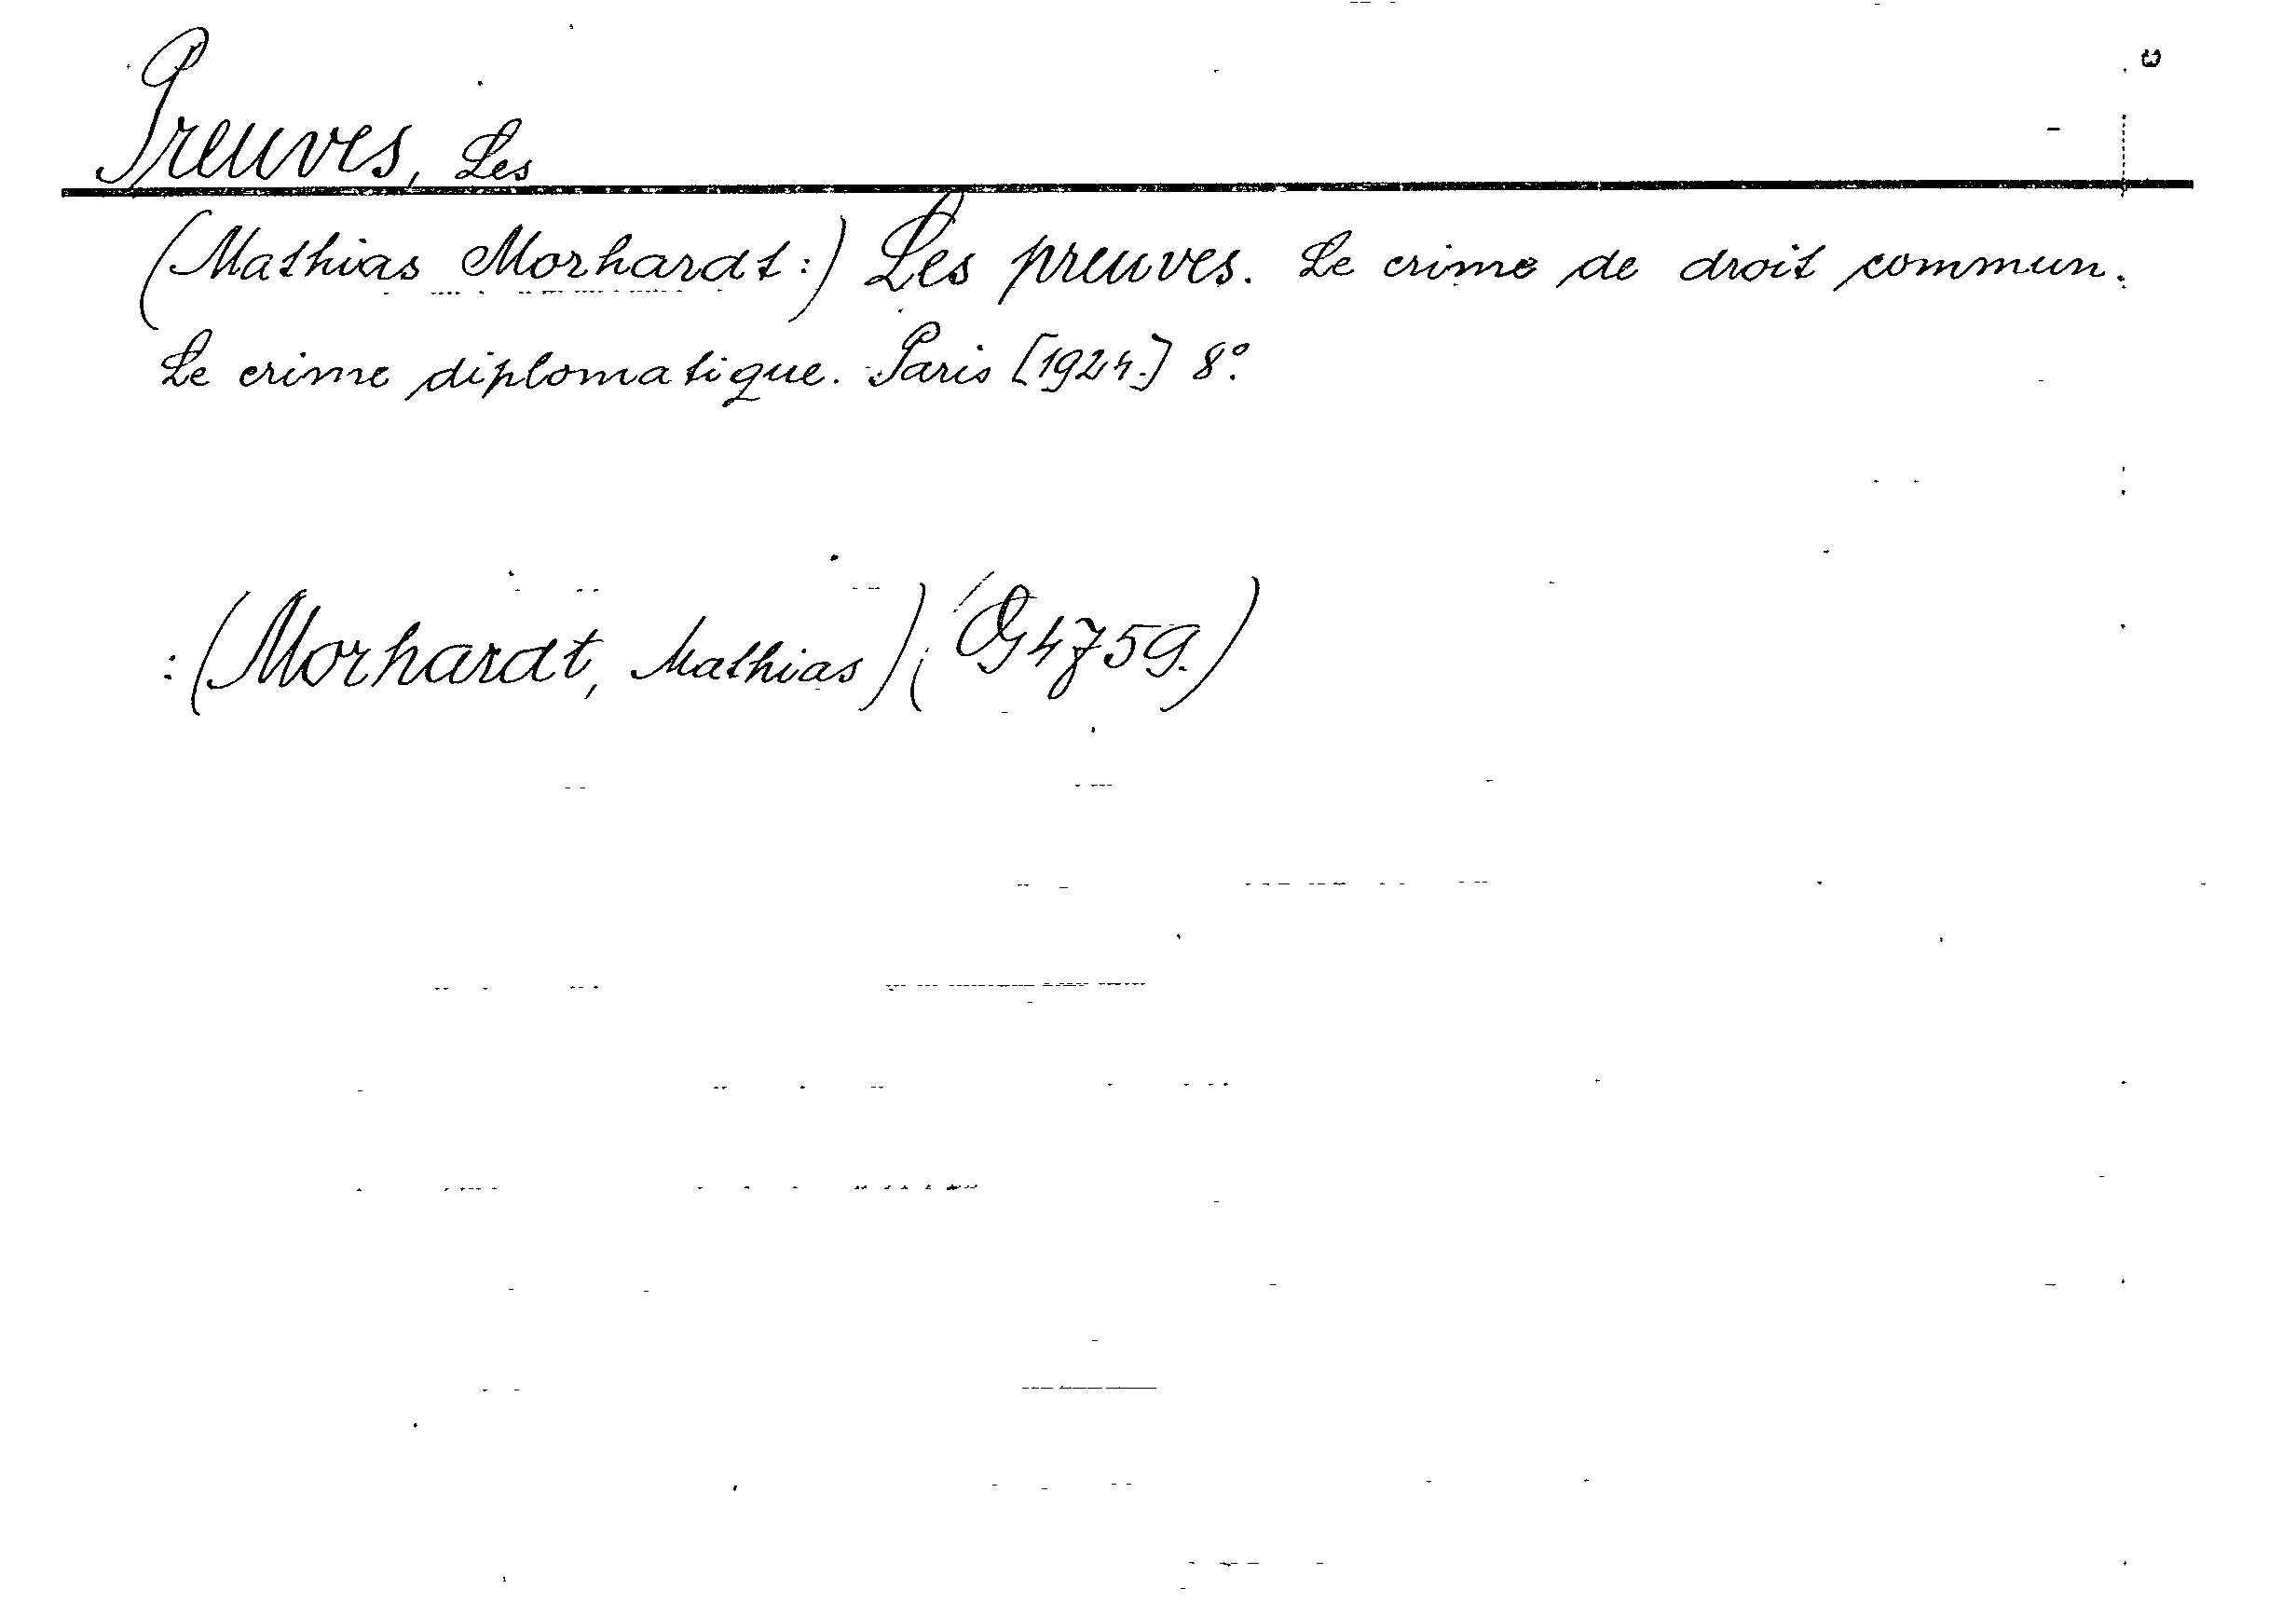 Preuves, Les
(Mathias Morhardt:) Les preuves. Le crime de droit commun.
Le crime diplomatique. Paris [1924.] 8°.
:(Morhardt, Mathias) (G 4759.)